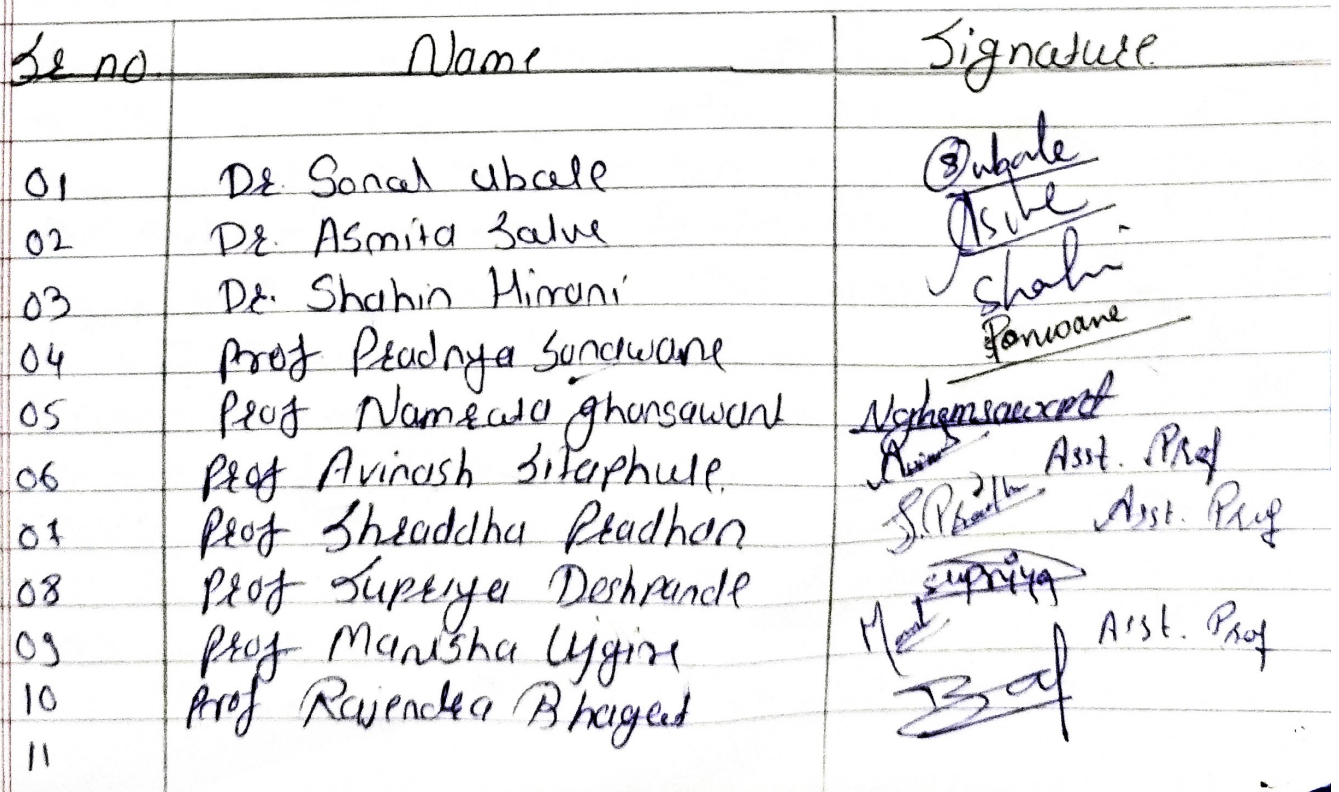 Sr no. Name Signature
01 Dr. Sonal Ubale Subale
02 Dr. Asmita Salve
03 Dr. Shahin Hirani Shahi
04 Prof Pradnya Sonawane
05 Prof Namrata ghansawant Nghansawant
06 Prof Avinash Sitaphule. Asst. Prof
07 Prof Shraddha Pradhan Asst. Prof
08 Prof Supriya Deshpande supriya
09 Prof Manisha Ujgire Asst. Prof
10 Prof Rajendra Bhagat
11